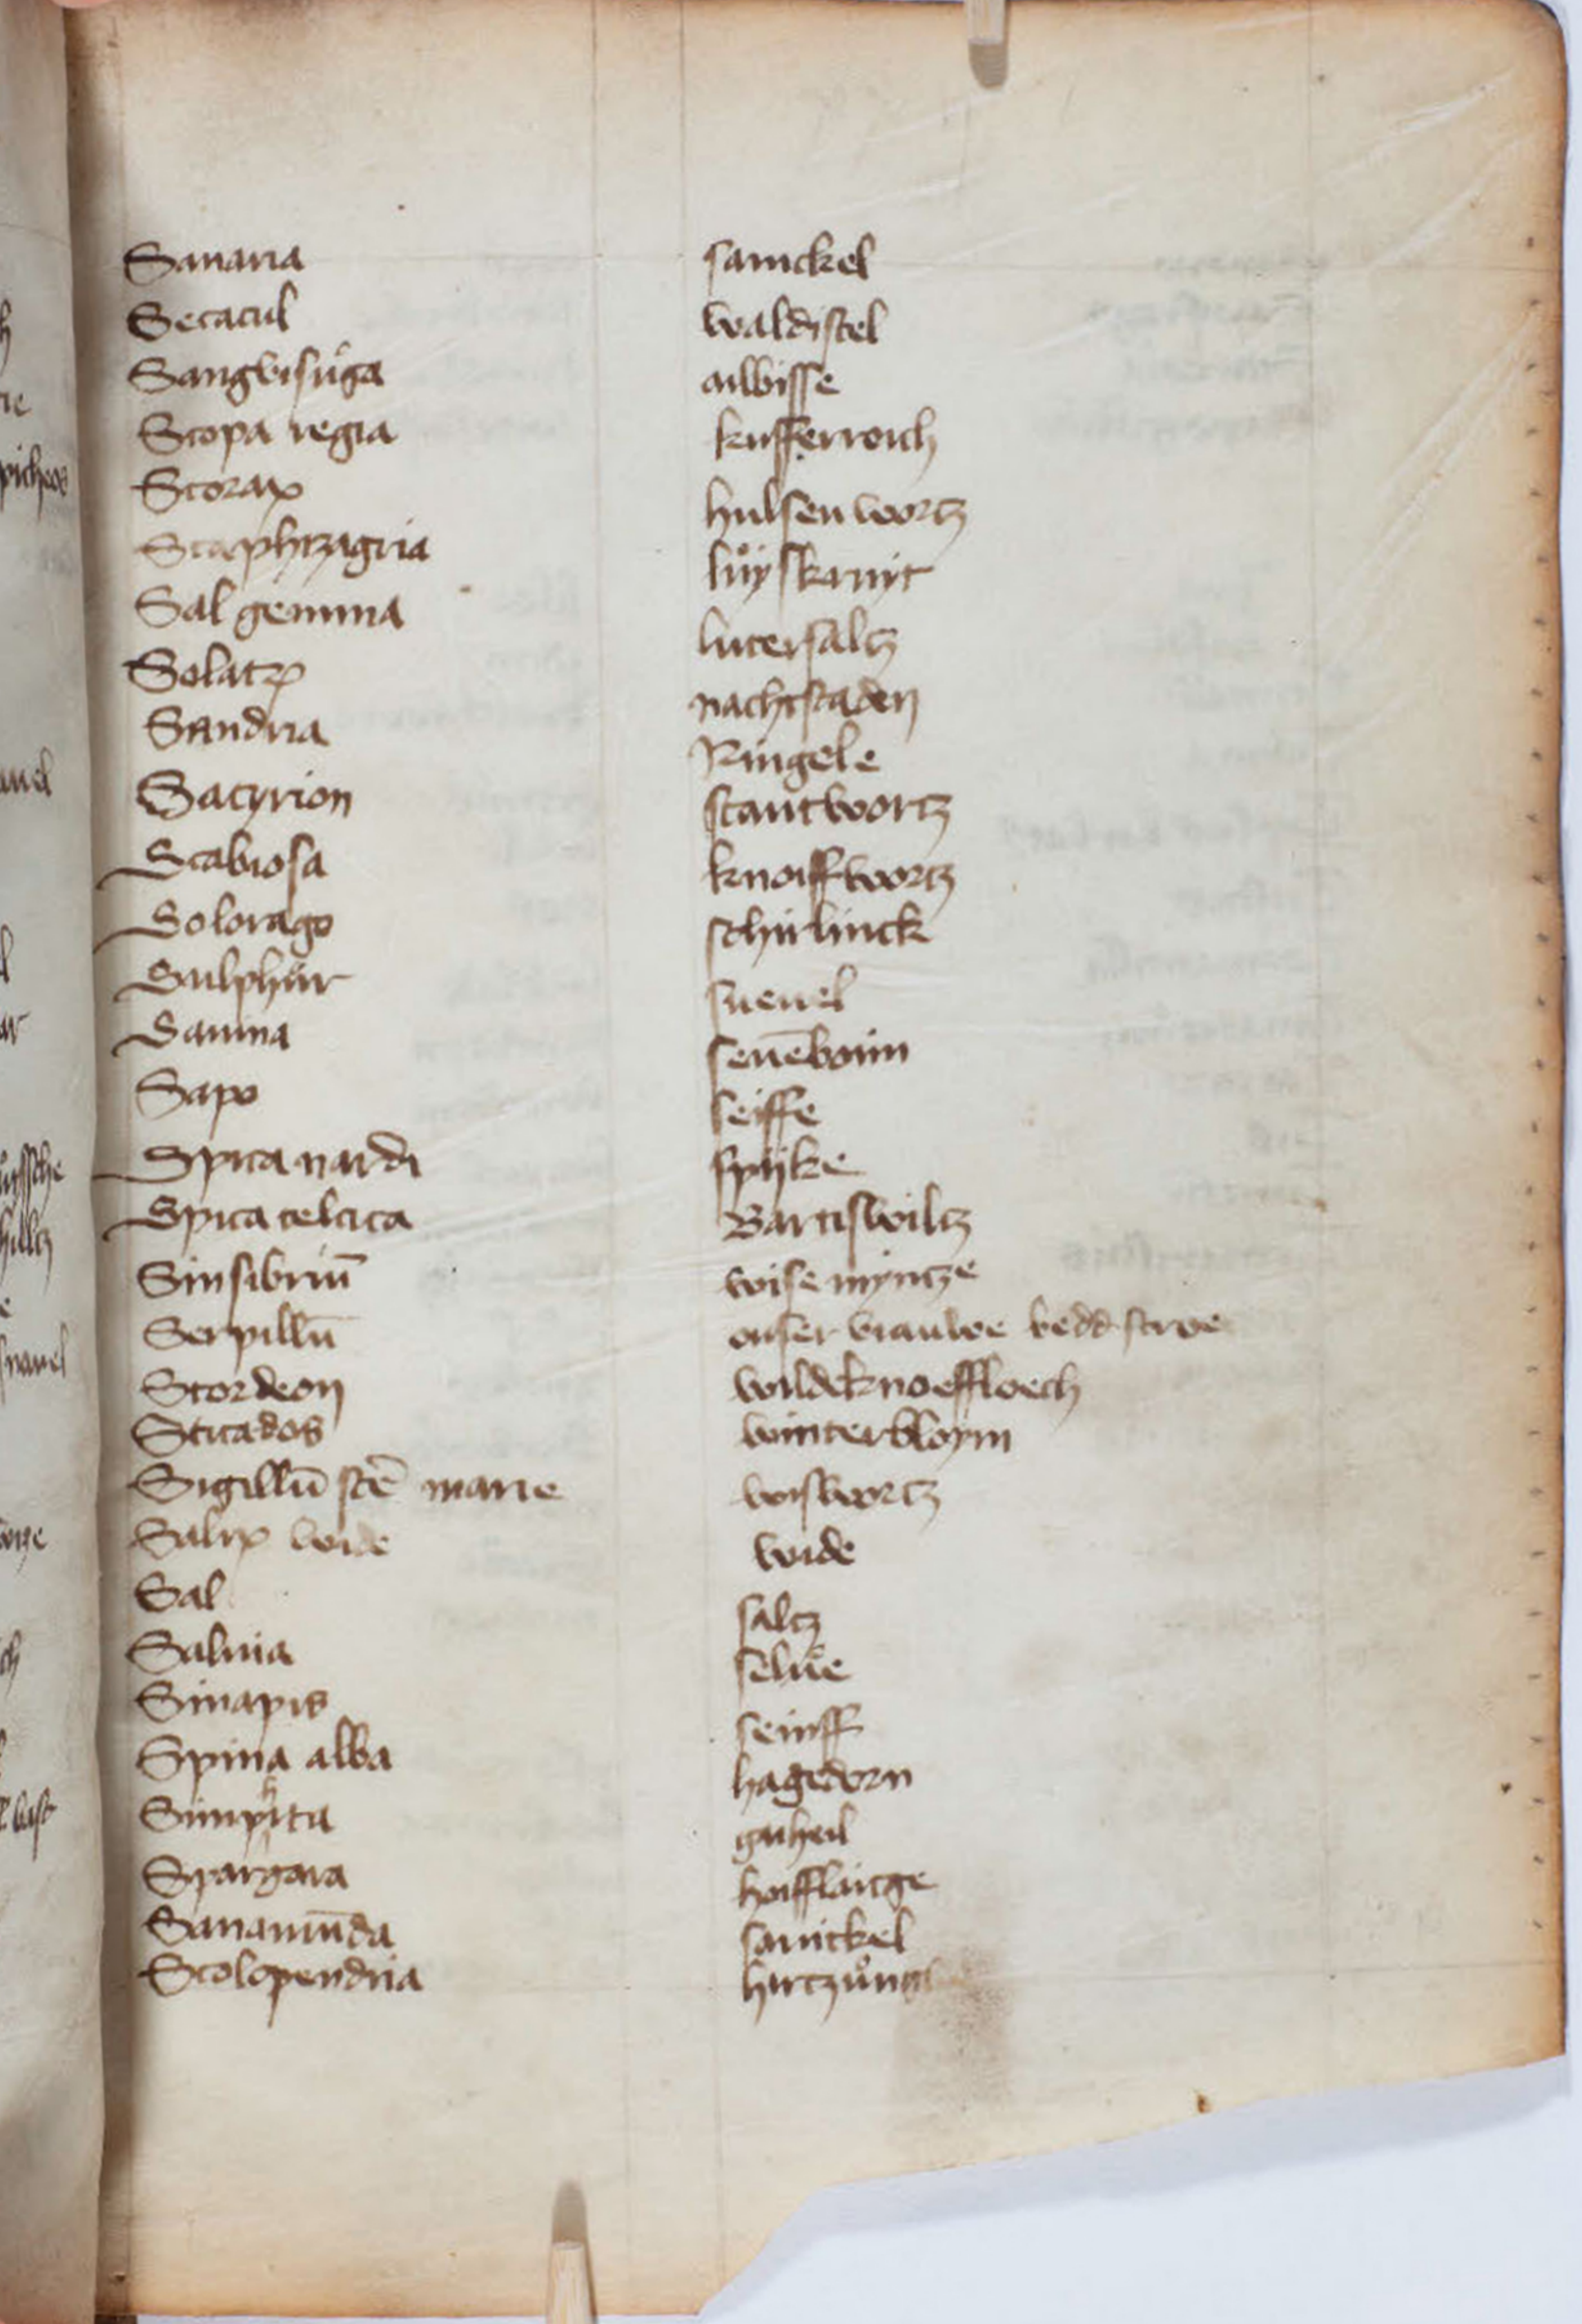 Sanaria samckel
Secacul waldistel
Sangvisuga
Scopa regia kufferroich
Storax hulsenwortz
Staphizagria luͦyskruyt
Sal gemma lutersaltz
Solatrum nachtscaden
Ringele
Satyrion stantwortz
Scabiosa knoiffwortz
Solorago schirlinck
Sulphur sueuel
Sauina seuēboim
Sapo seiffe
Spica nardi spijke
Spica celtica
Sinsibriū wise myntze
Serpillū onser vrauwe bedd stroe
Scordeon wildeknoeffloech
Sticados winterbloym
Sigillū scē marie wiswortz
Salix wide wide
Sal saltz
Saluia selue
Sinapis seinff
Spina alba hagedorn
Simphita gaiheil
Spargara hoifflaitge
Sanamūda sanickel
Scolopendria